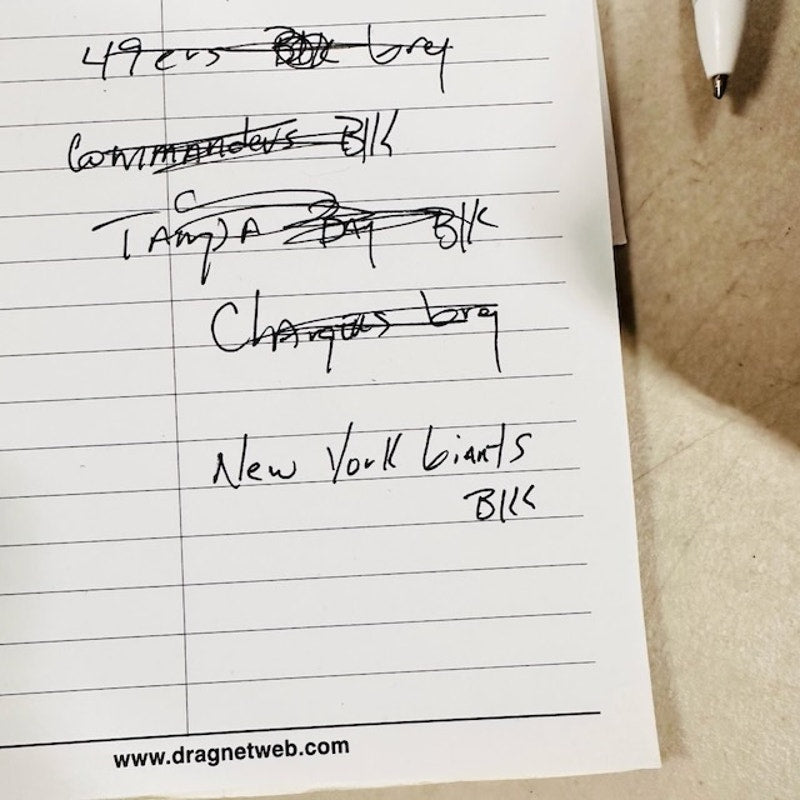 49ers Blk Grey
Commanders Blk
TAmpA BAy Blk
ChArgers Grey
New York Giants
Blk
www.dragnetweb.com